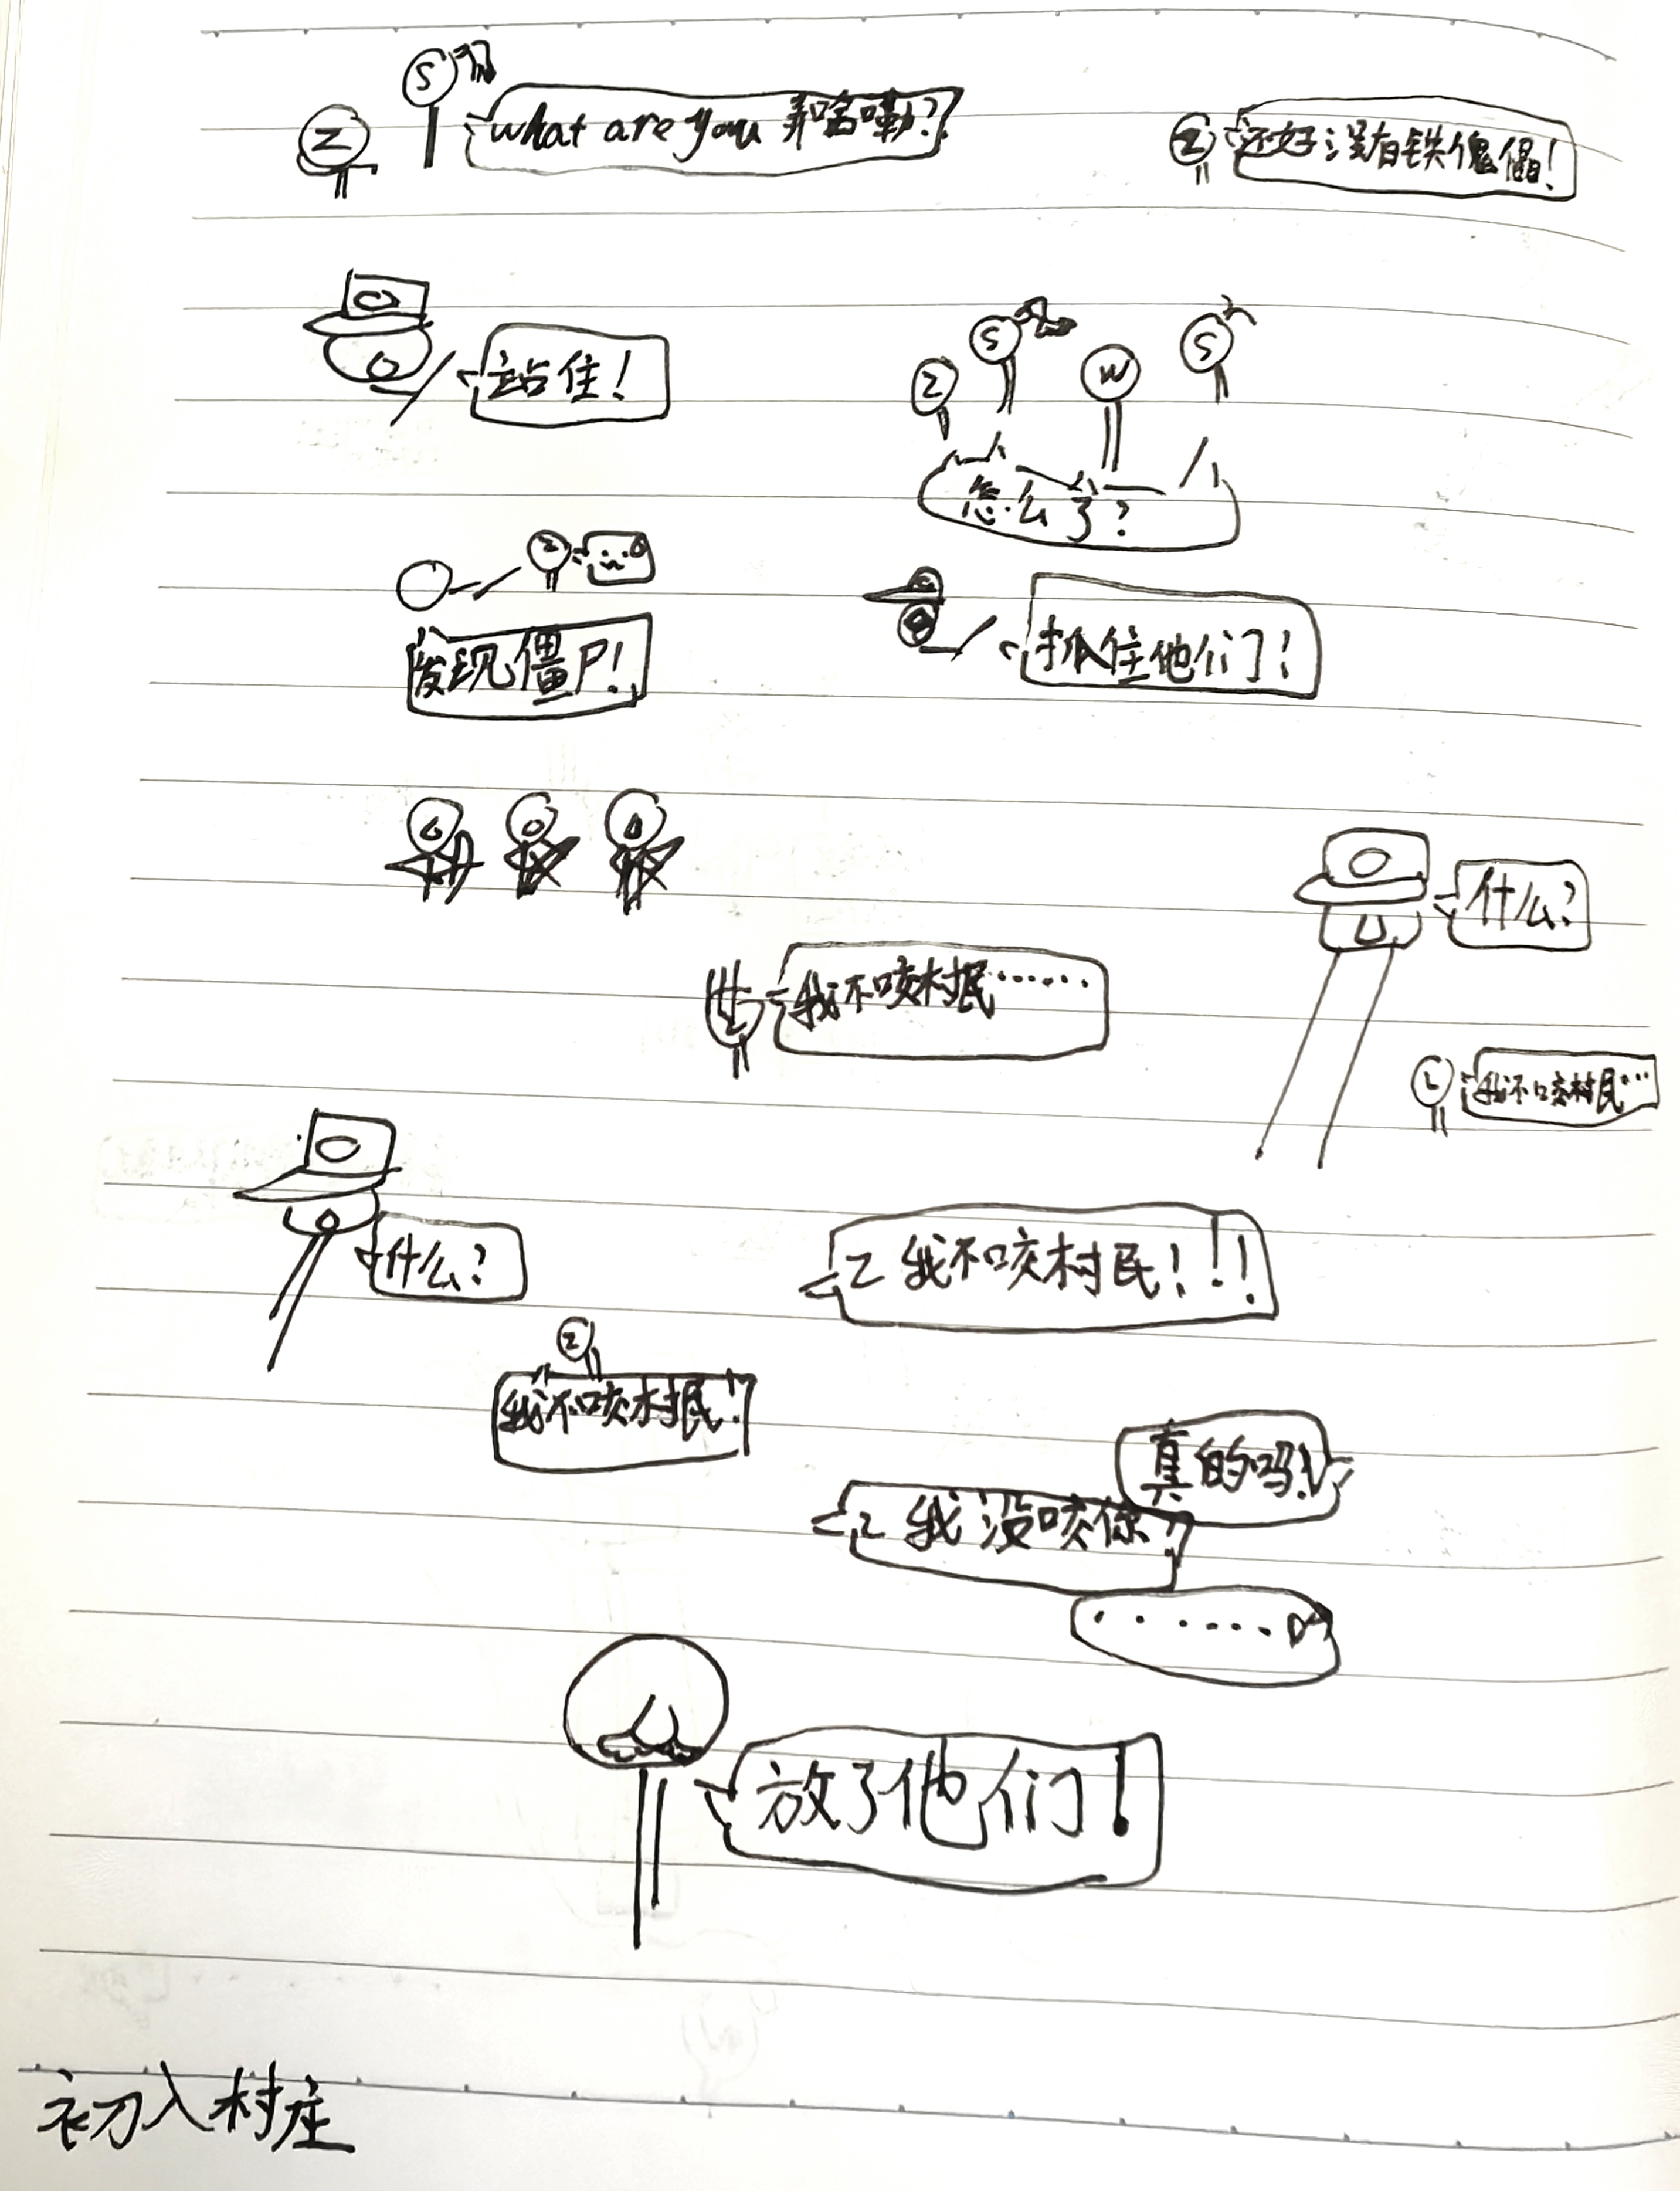 Z
S
what are you 弄啥嘞?
Z
还好没有铁傀儡!
站住!
Z
S
W
S
怎么了?
Z
发现僵尸!
抓住他们!
什么?
我不咬村民……
我不咬村民…
什么?
Z 我不咬村民!!!
Z
我不咬村民!
真的吗!
Z 我没咬你
……
放了他们!
初入村庄